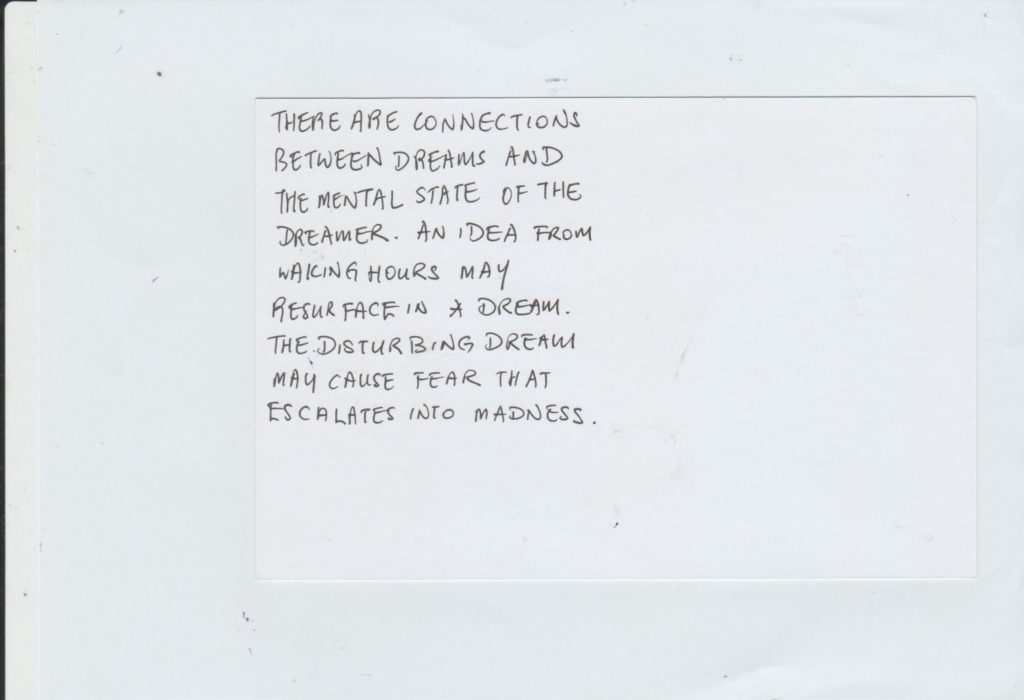 THERE ARE CONNECTIONS
BETWEEN DREAMS AND
THE MENTAL STATE OF THE
DREAMER. AN IDEA FROM
WAKING HOURS MAY
RESURFACE IN A DREAM.
THE DISTURBING DREAM
MAY CAUSE FEAR THAT
ESCALATES INTO MADNESS.